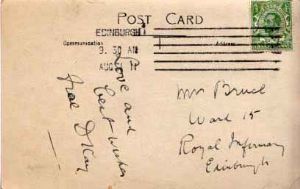 POST CARD
EDINBURGH
Communication
Address
9. 30 AM
AUG 11
Love and
best wishes
from D Kay
Mr Bruce
Ward 15
Royal Infirmary
Edinburgh